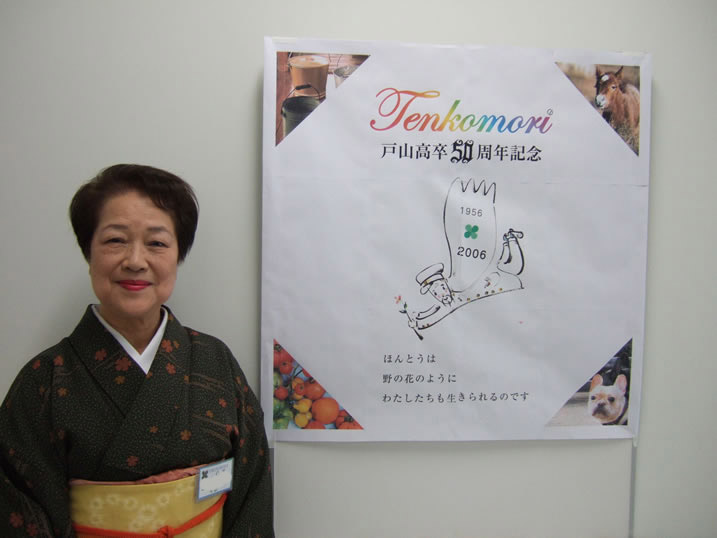 Tenkomori
戸山高卒50周年記念
1956
2006
ほんとうは
野の花のように
わたしたちも生きられるのです